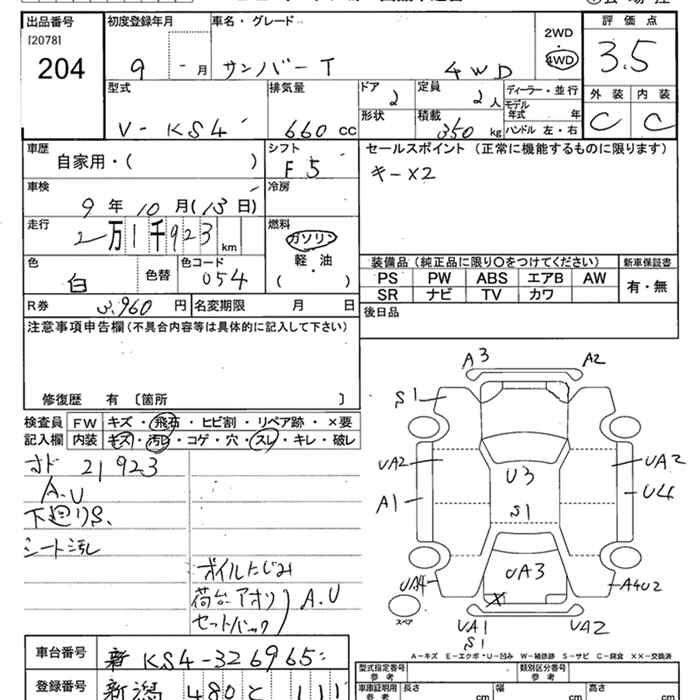 出品番号
[2078]
204
初度登録年月
9 - 月
車名・グレード
サンバー T 4WD
2WD
4WD
評価点
3.5
外装 内装
C C
型式
V-KS4
排気量
660 cc
ドア
2
形状
定員
2人
積載
350 kg
ディーラー・並行
モデル年式 年
ハンドル 左・右
車歴
自家用・( )
シフト
F5
車検
9年10月(13日)
冷房
走行
2万1千923 km
燃料
ガソリン
軽油
・
( )
色
白
色替
色コード
054
R券
3,960 円
名変期限 月 日
セールスポイント (正常に機能するものに限ります)
キー×2
装備品 (純正品に限り○をつけてください)
新車保証書
PS PW ABS エアB AW
SR ナビ TV カワ
有・無
後日品
注意事項申告欄 (不具合内容等は具体的に記入して下さい)
修復歴 有 〔箇所 〕
検査員記入欄
FW キズ・飛石・ヒビ割・リペア跡・×要
内装 キズ・汚レ・コゲ・穴・スレ・キレ・破レ
オド 21923
A.U
下廻りS.
シート汚レ
オイルにじみ
荷台アオリ
セットバック
A.U
A3 A2
S1
UA2
A1
U3
S1
UA3
UA2
U4
UA4
A4U2
×
スペア
UA1
S1
UA2
A-キズ E-エクボ・U-凹み W-補修跡 S-サビ C-腐食 ××-交換済
車台番号
新 KS4-326965
登録番号
新潟 480 と 111
型式指定番号
参考
類別区分番号
参考
車庫証明用
参考
長さ cm
幅 cm
高さ cm